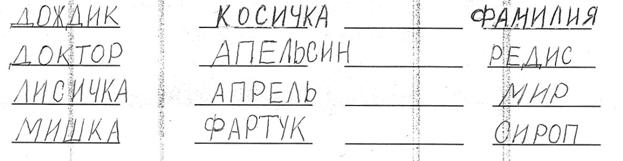 ДОЖДИК КОСИЧКА ФАМИЛИЯ
ДОКТОР АПЕЛЬСИН РЕДИС
ЛИСИЧКА АПРЕЛЬ МИР
МИШКА ФАРТУК СИРОП